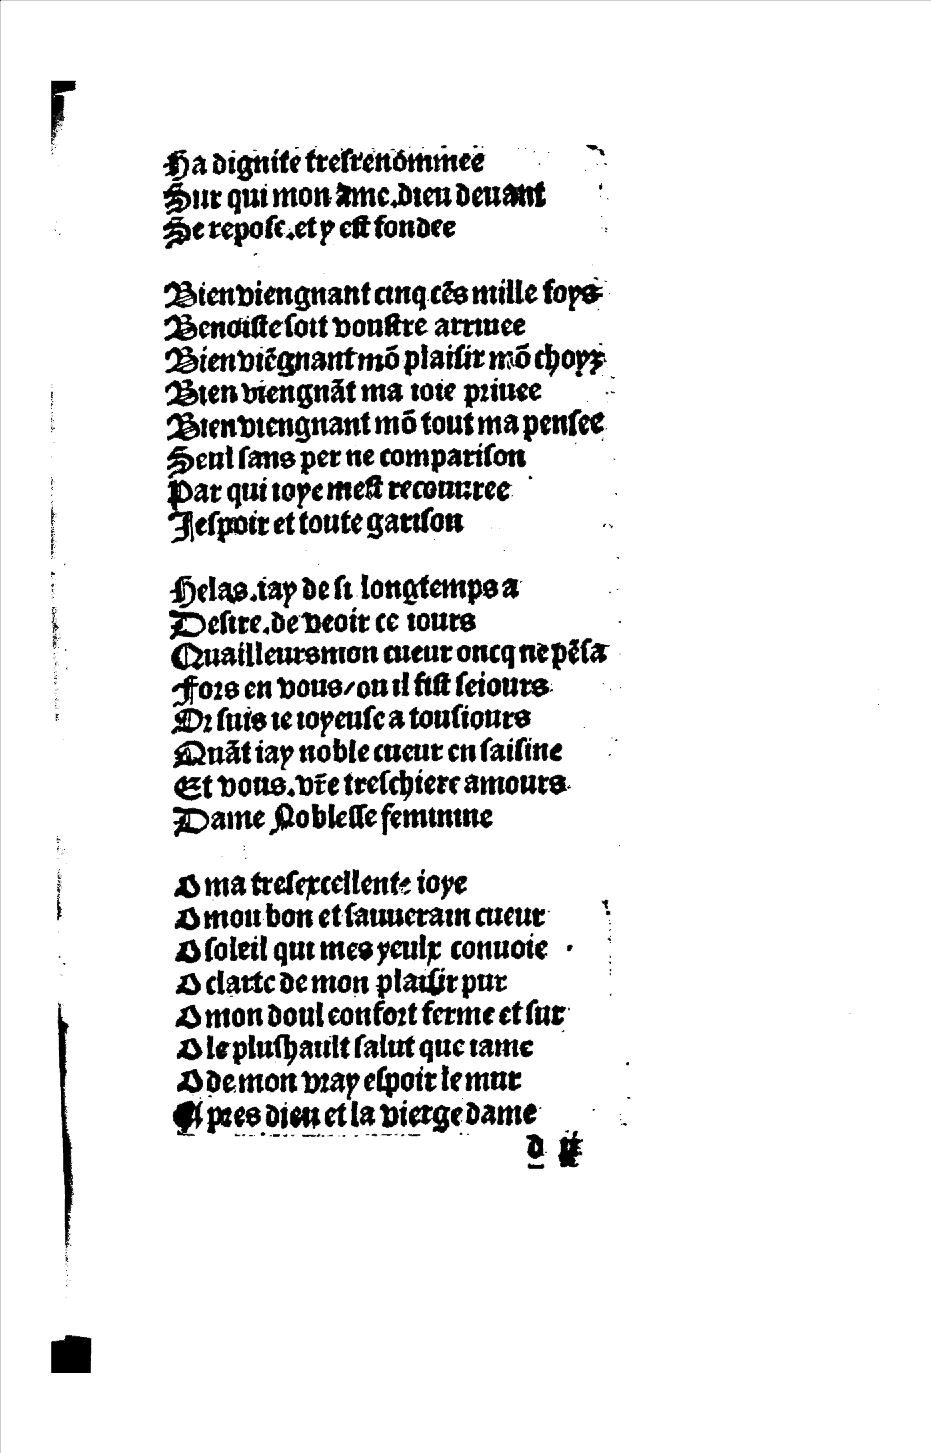 Ha dignite treſrenõmmee
Sur qui mon ame.dieu deuant
Se repoſe.et y eſt fondee
Bienviengnant cinq cẽs mille foys
Benoiſte ſoit vouſtre arriuee
Bienviẽgnant mõ plaiſir mõ choyx
Bien viengnãt ma ioie priuee
Bienviengnant mõ tout ma penſee
Seul ſans per ne compariſon
Par qui ioye meſt recouuree
Jeſpoir et toute gariſon
Helas.iay de ſi longtemps a
Deſire.de veoir ce iours
Quailleurs mon cueur oncq ne pẽſa
Fors en vous/ou il fiſt ſeiours
Or ſuis ie ioyeuſe a touſiours
Quãt iay noble cueur en ſaiſine
Et vous.vr̃e treſchiere amours
Dame Nobleſſe feminine
O ma treſexcellente ioye
O mon bon et ſauuerain cueur
O ſoleil qui mes yeulx conuoie
O clarte de mon plaiſir pur
O mon doul confort ferme et ſur
O le pluſhault ſalut que iame
O de mon vray eſpoir le mur
Apres dieu et la vierge dame
d ii